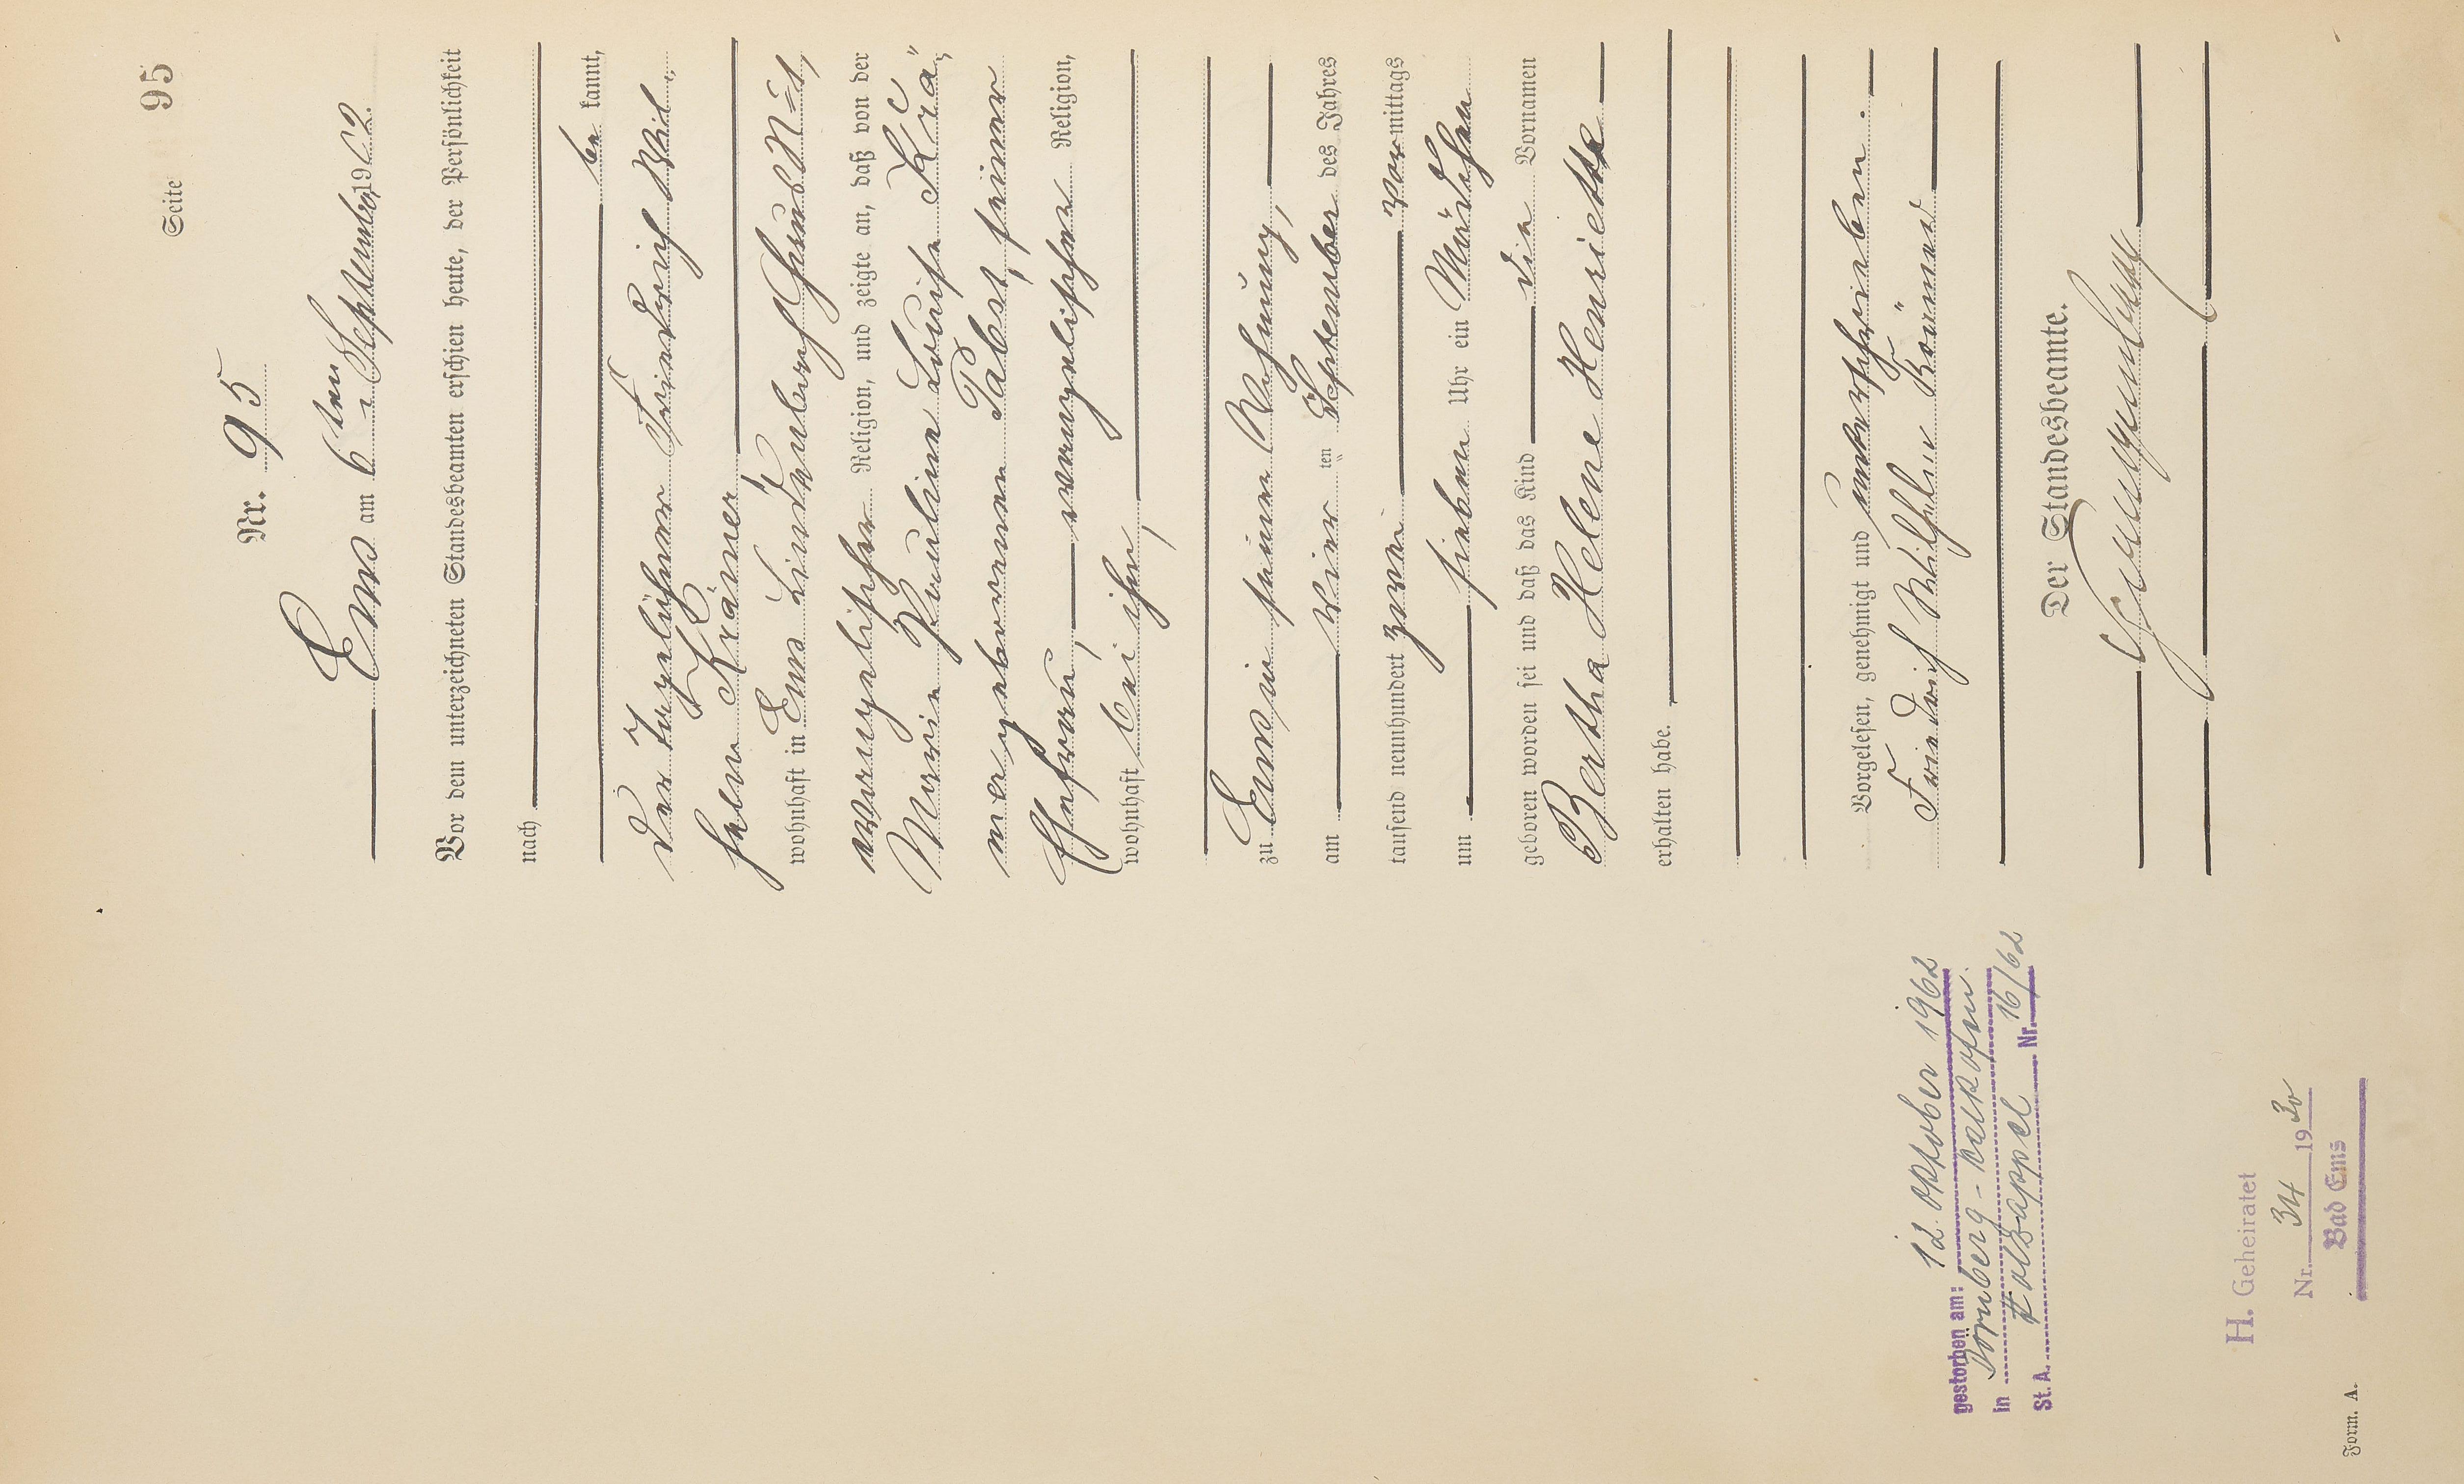 Seite 95
Nr. 95
Ems am 6ten September 1902.
Vor dem unterzeichneten Standesbeamten erschien heute, der Persönlichkeit
nach
be kannt,
der Tagelöhner Friedrich Wil-
helm Krämer,
wohnhaft in Ems Lindenbach Haus
evangelischer Religion, und zeigte an, daß von der
Maria Pauline Luise Krä-
mer geborenen Pabst, seiner
Ehefrau, evangelischer Religion,
wohnhaft bei ihm,
zu Ems in seiner Wohnung,
am vier ten September des Jahres
tausend neunhundert zwei vormittags
um sieben Uhr ein Mädchen
geboren worden sei und daß das Kind die Vornamen
Bertha Helene Henriette
erhalten habe.
Vorgelesen, genehmigt und unterschrieben.
Friedrich Wilhelm Krämer
Der Standesbeamte.
gestorben am: 12. Oktober 1962
in Dörnberg-Kalkofen
St. A. Holzappel Nr. 16/62
H. Geheiratet
Nr. 34 1930
Bad Ems
Form. A.